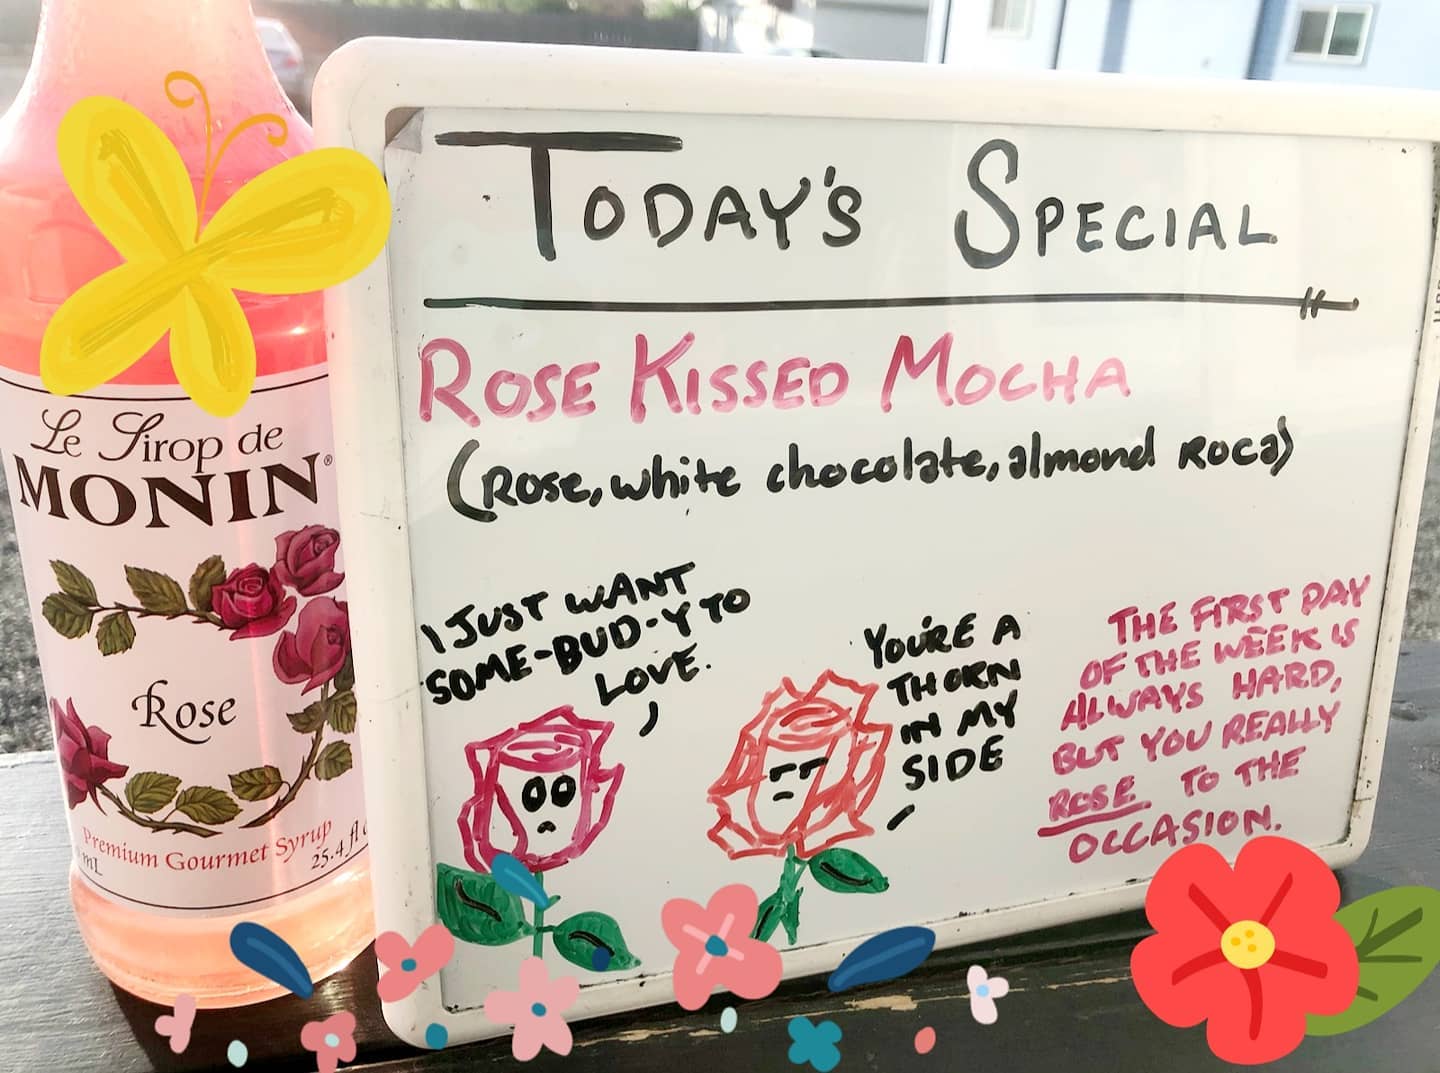 Le Sirop de
MONIN®
Rose
Premium Gourmet Syrup
mL
25.4 fl
TODAY'S SPECIAL
ROSE KISSED MOCHA
(ROSE, white chocolate, almond ROCA)
I JUST WANT
SOME-BUD-Y TO
LOVE.
YOU'RE A
THORN
IN MY
SIDE
THE FIRST DAY
OF THE WEEK IS
ALWAYS HARD,
BUT YOU REALLY
ROSE TO THE
OCCASION.